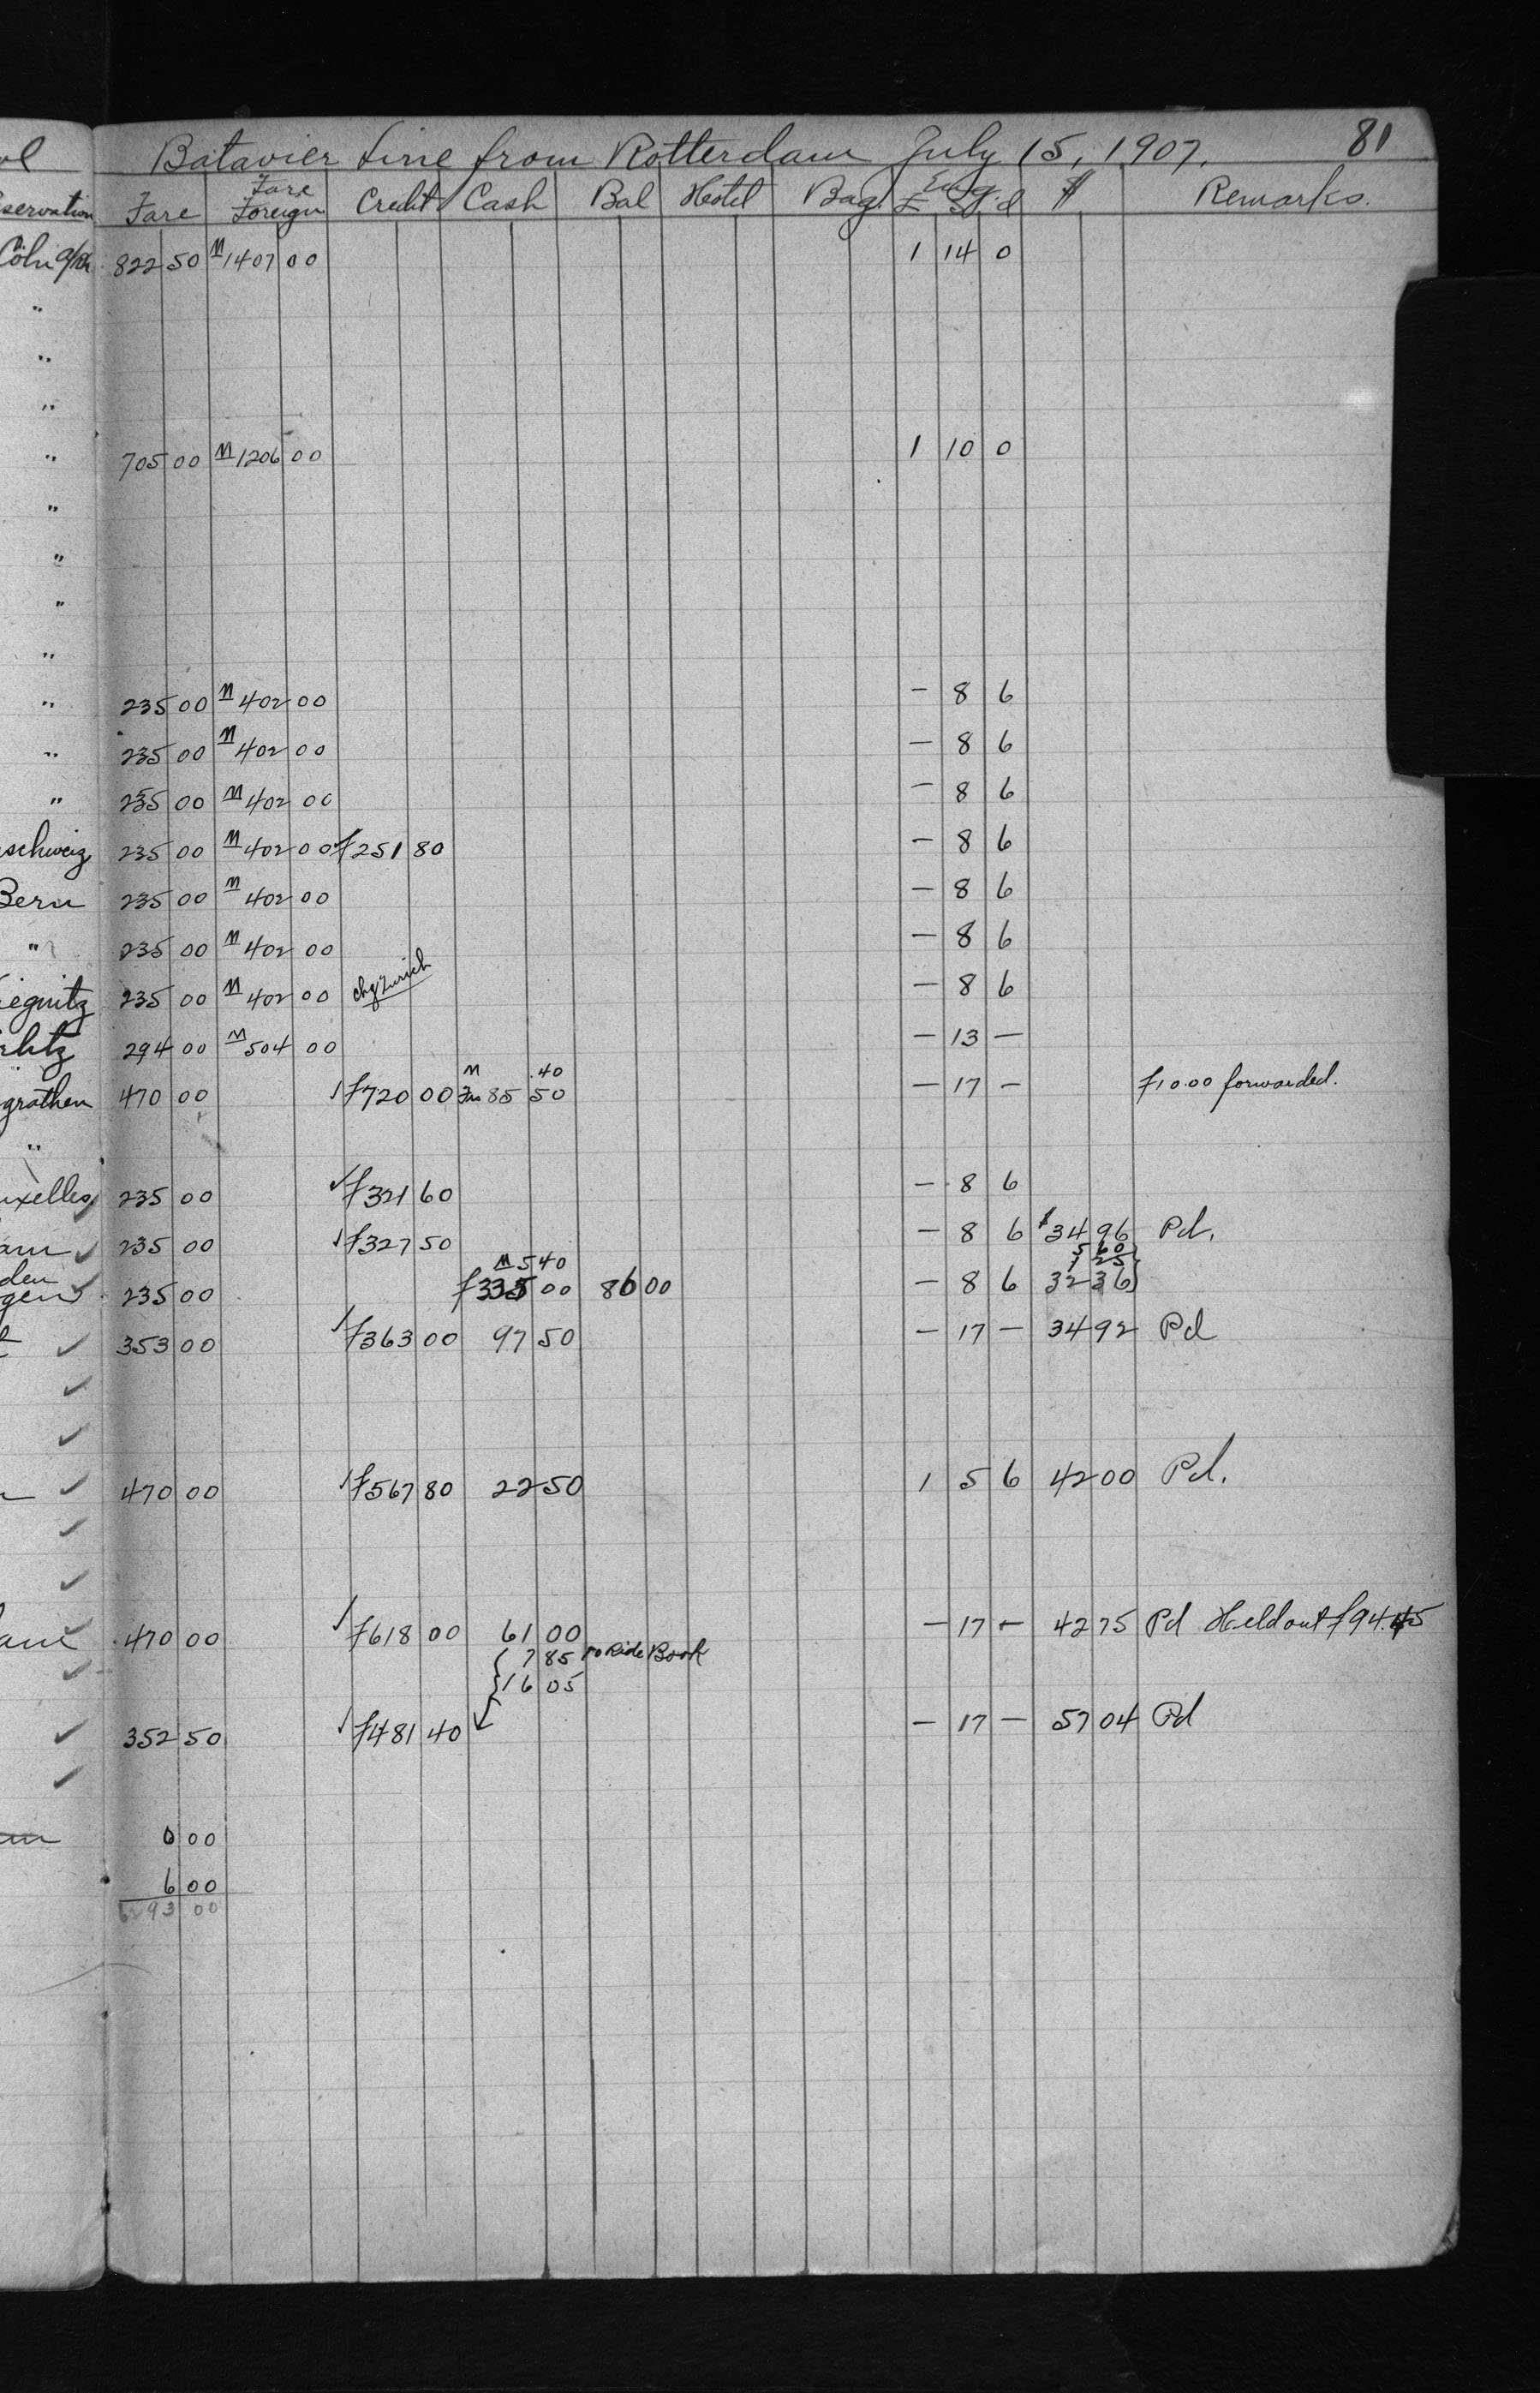 Batavier Line from Rotterdam July 15, 1907. 81
servation Fare Fare Foreign Credit Cash Bal Hotel Bag. Eng £ S d $ Remarks.
Cöln a/Rh 822 50 M 1407 00 1 14 0
"
"
"
" 705 00 M 1206 00 1 10 0
"
"
"
"
" 235 00 M 402 00 — 8 6
" 235 00 M 402 00 — 8 6
" 235 00 M 402 00 — 8 6
schweig 235 00 M 402 00 ƒ251 80 — 8 6
Bern 235 00 M 402 00 — 8 6
" 235 00 M 402 00 — 8 6
iegnitz 235 00 M 402 00 chg Zurich — 8 6
rlitz 294 00 M 504 00 — 13 —
M .40
grathen 470 00 ƒ720 00 85 50 — 17 — ƒ10.00 forwarded.
"
uxelles 235 00 ✓ ƒ321 60 — 8 6
am ✓ 235 00 ƒ327 50 — 8 6 $34 96 Pd.
den M 5 40 5 60
1 25
gen ✓ 235 00 ƒ335 00 86 00 — 8 6 32 36
t ✓ 353 00 ƒ363 00 97 50 — 17 — 34 92 Pd
✓
✓
✓ 470 00 ƒ567 80 22 50 1 5 6 42 00 Pd.
✓
✓
✓ 470 00 ƒ618 00 61 00 — 17 — 42 75 Pd Held out ƒ94.45
✓ 7 85 Book
16 05
✓ 352 50 ƒ481 40 — 17 — 57 04 Pd
✓
6 00
6 00
93 00